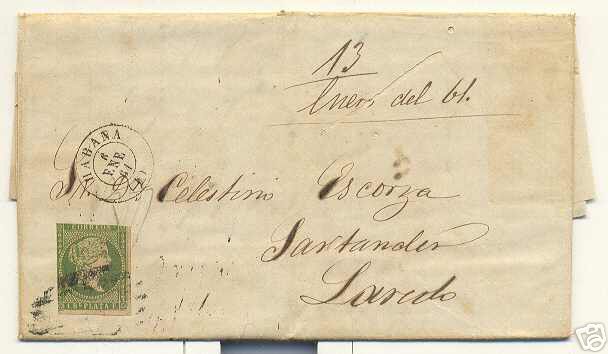 13
Enero del 61.
HABANA
6
ENE
61
Sr. Dn. Celestino Escorza
Santander
Laredo
CORREOS
PLATA F